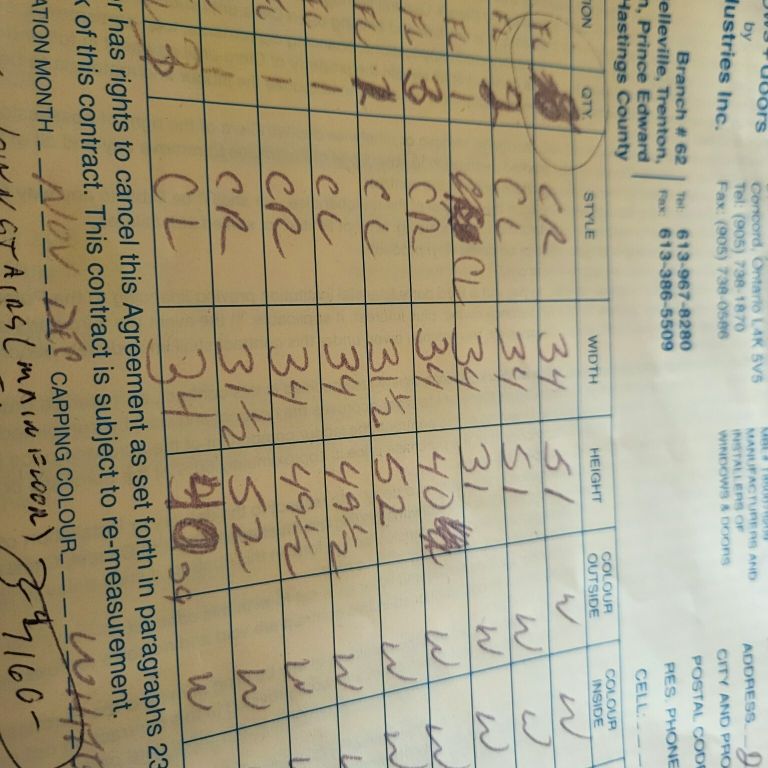 ows + doors
by
dustries Inc.
Branch # 62
elleville, Trenton,
n, Prince Edward
Hastings County
Concord, Ontario L4K 5V5
Tel: (905) 738-1870
Fax: (905) 738-0586
Tel: 613-967-8280
Fax: 613-386-5509
MANUFACTURERS AND
INSTALLERS OF
WINDOWS & DOORS
ADDRESS
CITY AND PRO
POSTAL COD
RES. PHONE
CELL:
ION QTY. STYLE WIDTH HEIGHT COLOUR OUTSIDE COLOUR INSIDE
FL CR 34 51 W W
FL 2 CL 34 51 W W
FL 1 CL 34 31 W W
FL 3 CR 34 40 W W
FL 2 CL 31½ 52 W W
FL 1 CL 34 49½ W
1 CR 34 49½ W
1 CR 31½ 52 W
3 CL 34 40 34 W
r has rights to cancel this Agreement as set forth in paragraphs 23
k of this contract. This contract is subject to re-measurement.
ATION MONTH NOV DEC CAPPING COLOUR WHITE
(MAIN FLOOR)